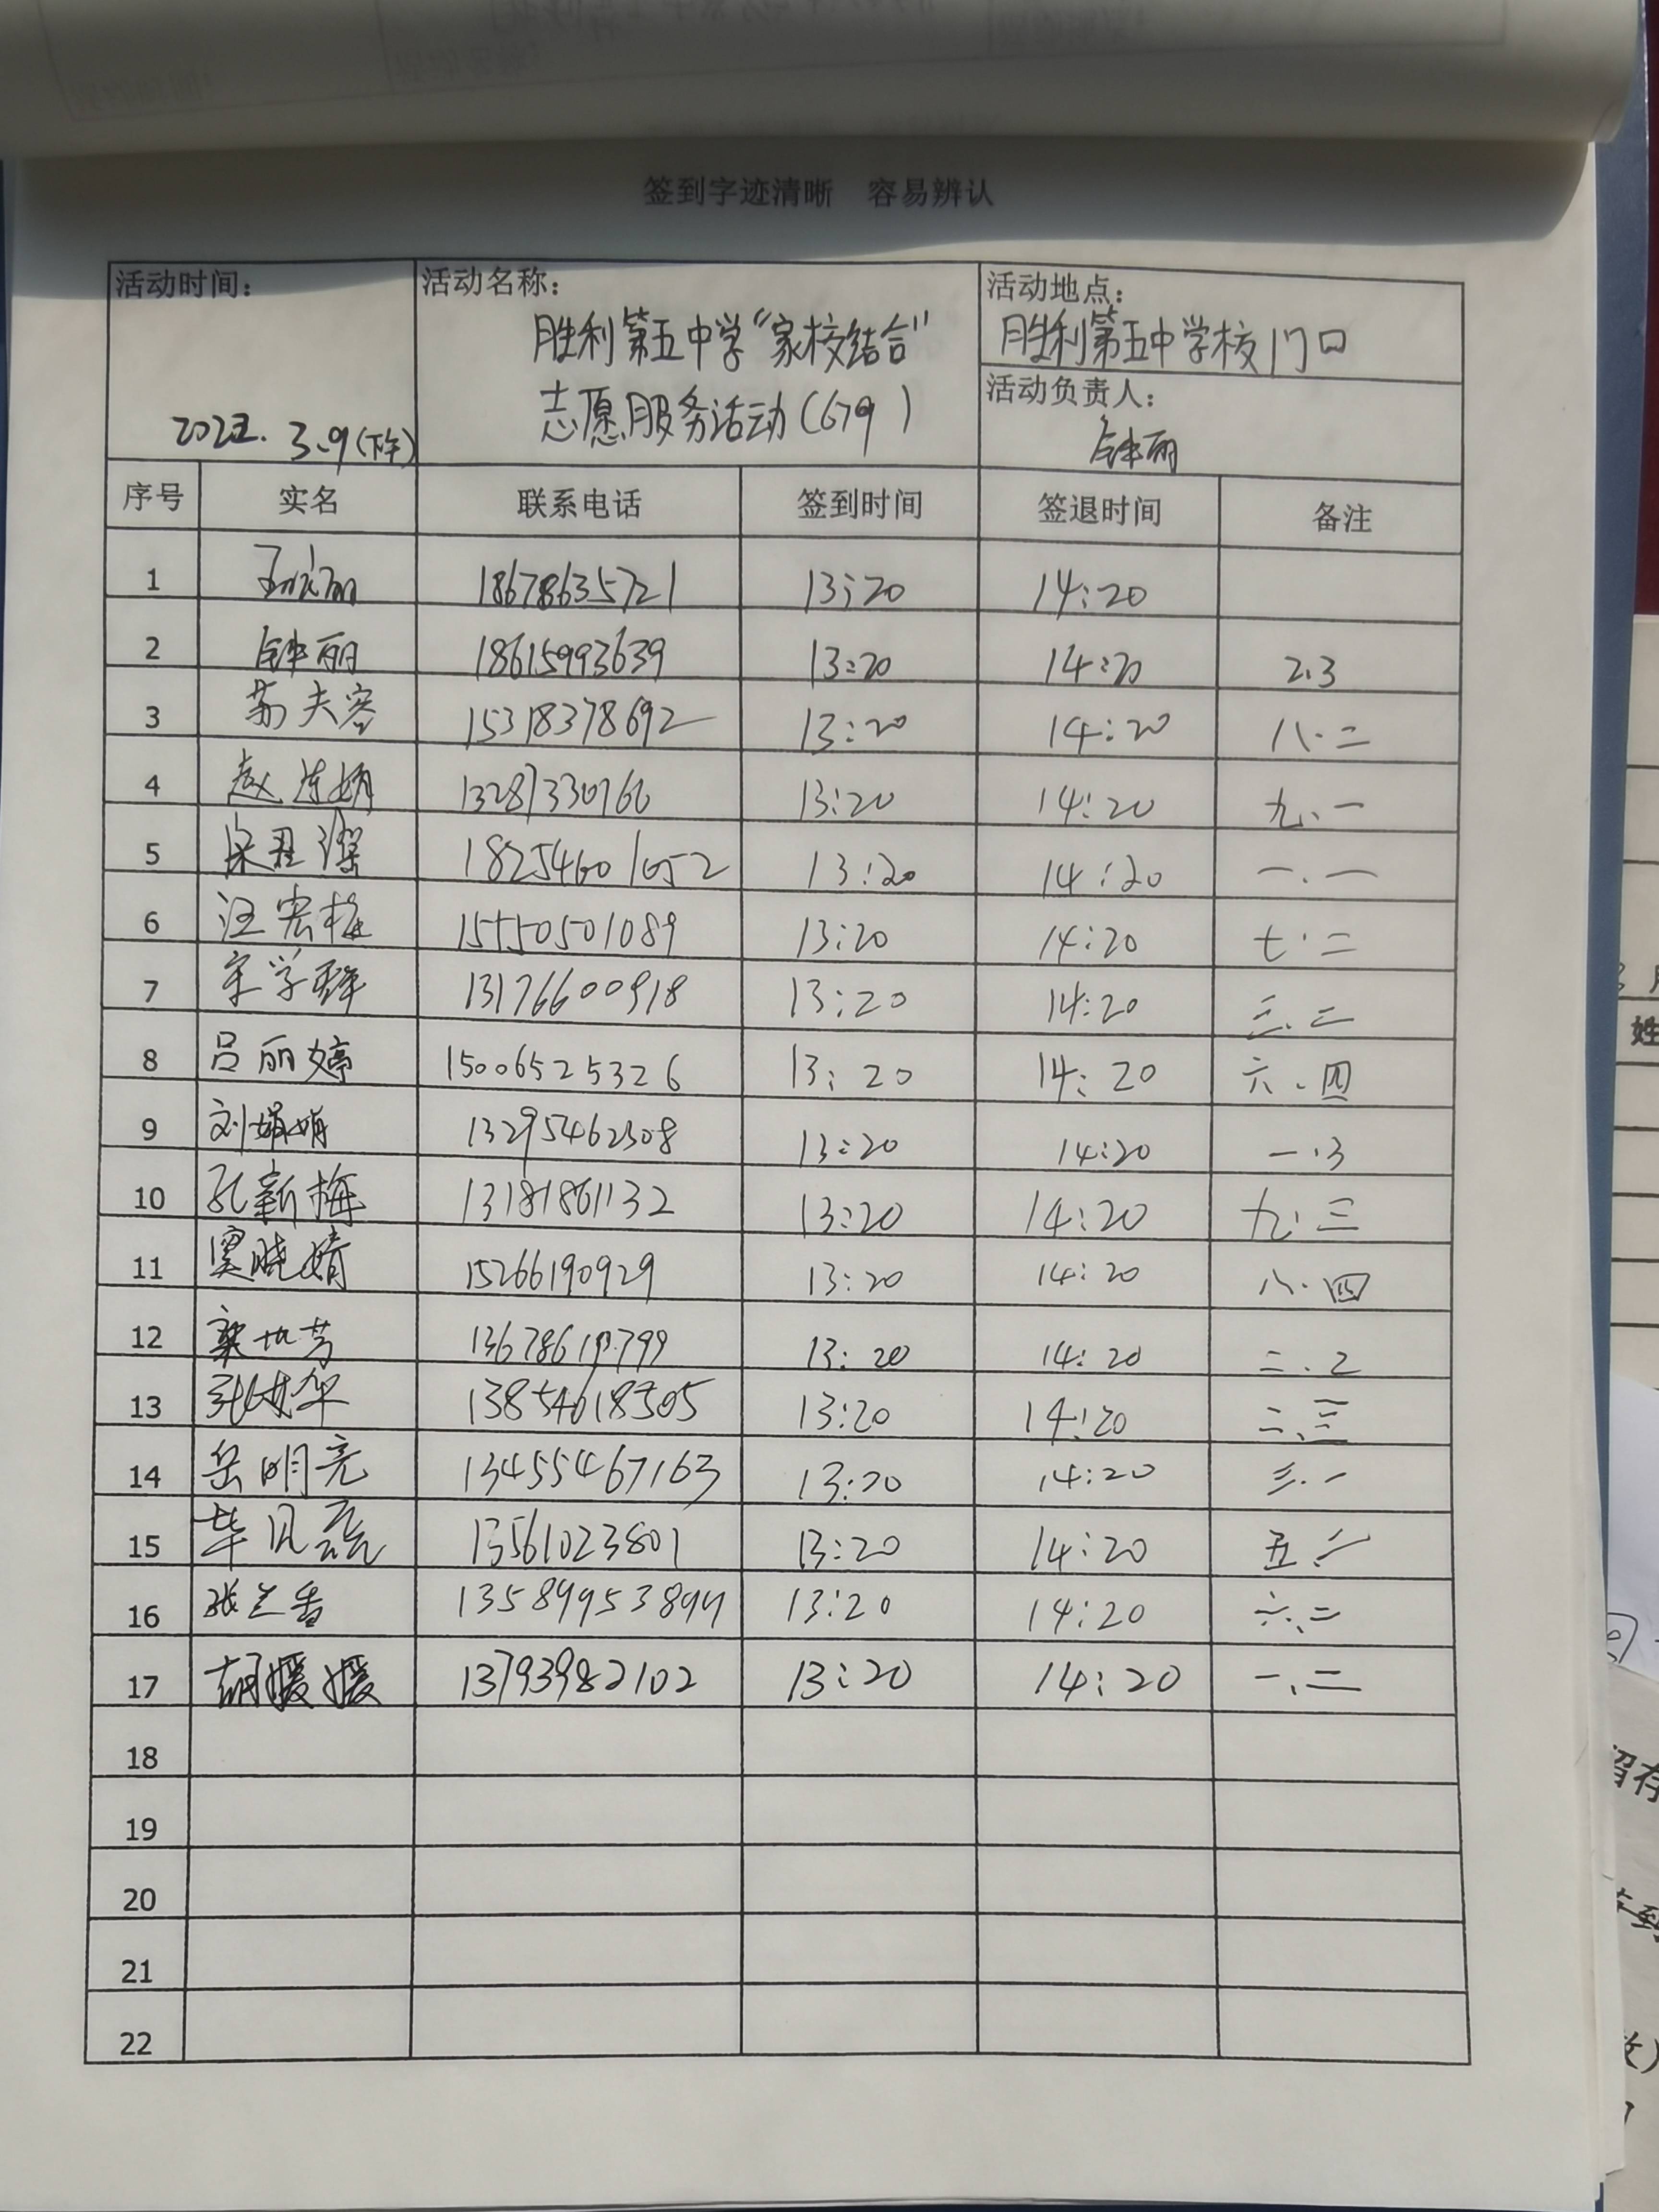 签到字迹清晰 容易辨认
活动时间: 活动名称: 活动地点:
胜利第五中学"家校结合" 胜利第五中学校门口
志愿服务活动(679) 活动负责人:
3.9(下午) 钟丽
序号 实名 联系电话 签到时间 签退时间 备注
1 18678635721 13:20 14:20
2 钟丽 18615993639 13:20 14:20 2.3
3 苏夫容 15318378692 13:20 14:20 八.二
4 赵 13287330766 13:20 14:20 九、一
5 18254601052 13:20 14:20 一.一
6 汪宏梅 15550501089 13:20 14:20 七.二
7 宋学 13176600918 13:20 14:20 三.二
8 吕丽婷 15006525326 13:20 14:20 六、四
9 刘娟娟 13295462308 13:20 14:20 一.3
10 孔新梅 13181861132 13:20 14:20 九.三
11 窦晓婧 15266190929 13:20 14:20 八.四
12 13:20 14:20 二.2
13 13854618505 13:20 14:20 二、三
14 岳明亮 13455467163 13:20 14:20 三.一
15 13561023801 13:20 14:20 五.二
16 张兰香 13:20 14:20 六、二
17 胡媛媛 13793982102 13:20 14:20 一、二
18
19
20
21
22
姓
留存